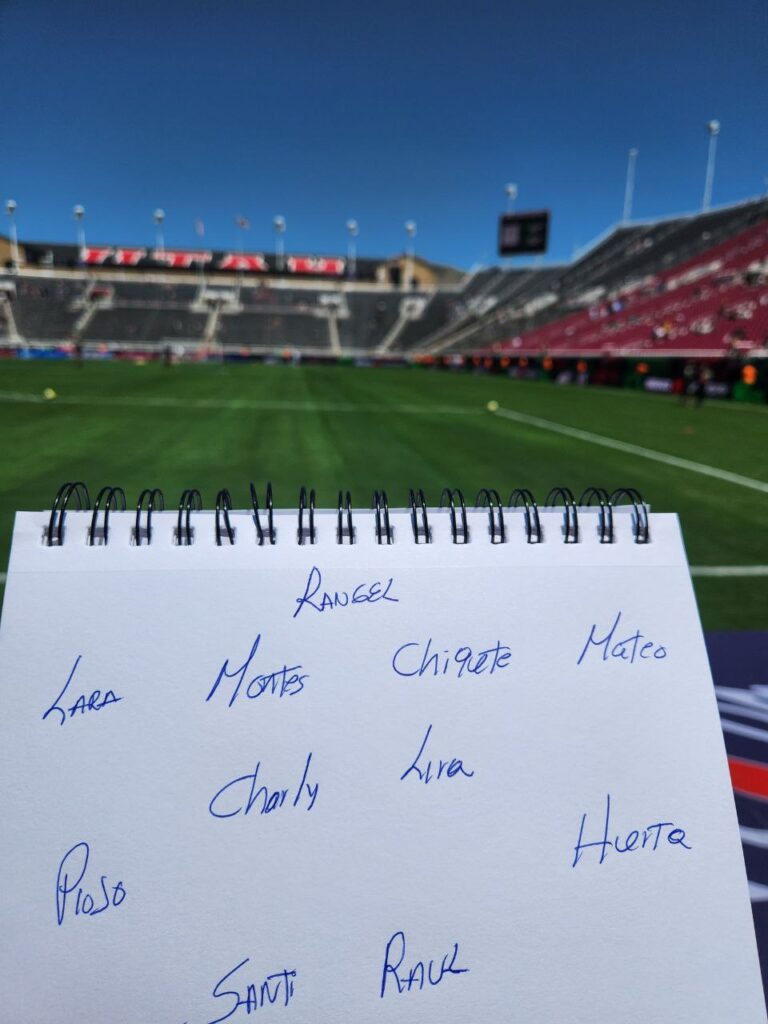 UTAH
RANGEL
LARA Montes Chiquete Mateo
Charly Lira
Huerta
PIOJO
SANTI RAUL